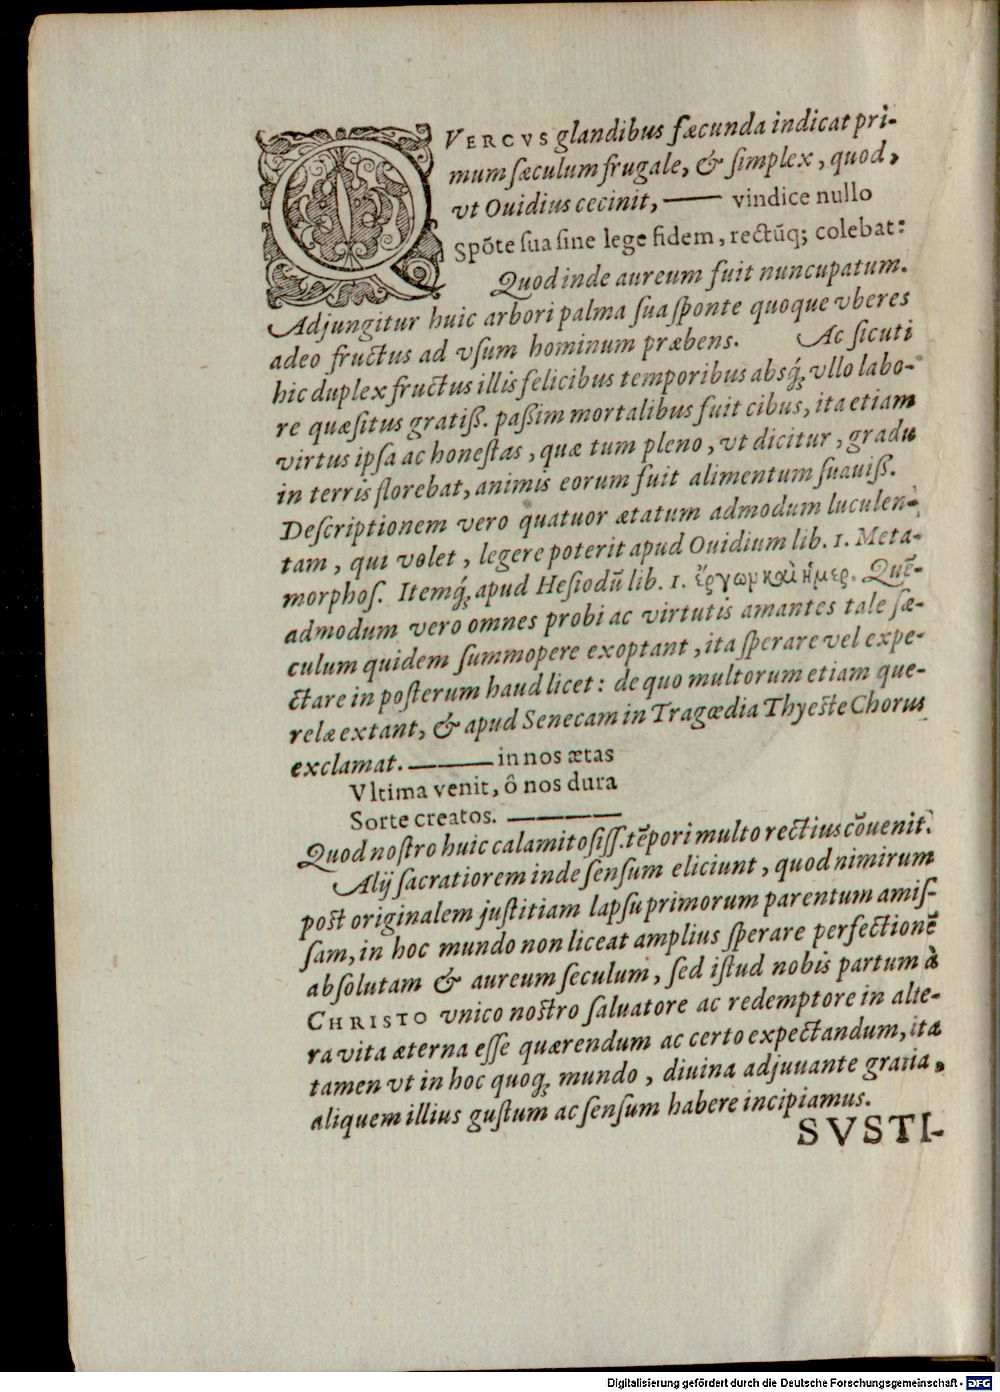 QVERCVS glandibus fæcunda indicat pri-
mum sæculum frugale, & simplex, quod,
vt Ouidius cecinit, —— vindice nullo
Spõte sua sine lege fidem, rectũq; colebat:
Quod inde aureum fuit nuncupatum.
Adjungitur huic arbori palma sua sponte quoque vberes
adeo fructus ad vsum hominum præbens. Ac sicuti
hic duplex fructus illis felicibus temporibus absq́; vllo labo-
re quæsitus gratiss. passim mortalibus fuit cibus, ita etiam
virtus ipsa ac honestas, quæ tum pleno, vt dicitur, gradu
in terris florebat, animis eorum fuit alimentum suauiss.
Descriptionem vero quatuor ætatum admodum luculen-
tam, qui volet, legere poterit apud Ouidium lib. 1. Meta-
morphos. Itemq́; apud Hesiodũ lib. 1. ἔργωμ καὶ ἡμερ. Quẽ-
admodum vero omnes probi ac virtutis amantes tale sæ-
culum quidem summopere exoptant, ita sperare vel expe-
ctare in posterum haud licet: de quo multorum etiam que-
relæ extant, & apud Senecam in Tragœdia Thyeste Chorus
exclamat. ——— in nos ætas
Vltima venit, ô nos dura
Sorte creatos. ————
Quod nostro huic calamitosiss. tẽpori multo rectius cõuenit.
Alij sacratiorem inde sensum eliciunt, quod nimirum
post originalem justitiam lapsu primorum parentum amis-
sam, in hoc mundo non liceat amplius sperare perfectionẽ
absolutam & aureum seculum, sed istud nobis partum à
CHRISTO vnico nostro saluatore ac redemptore in alte-
ra vita æterna esse quærendum ac certo expectandum, ita
tamen vt in hoc quoq; mundo, diuina adjuuante gratia,
aliquem illius gustum ac sensum habere incipiamus.
SVSTI-
Digitalisierung gefördert durch die Deutsche Forschungsgemeinschaft - DFG